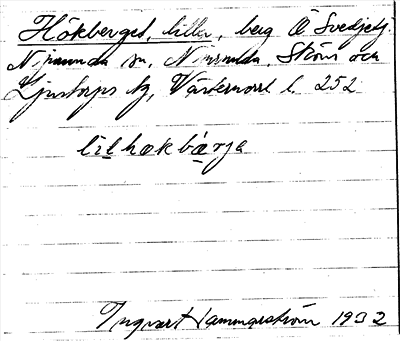 Hökberget, lilla, berg Ö Svedjetj.
Njurunda sn, Njurunda, Sköns och
Ljustorps tg, Västernorrl. l. 252
lilhøkbárja
Ingvart Hammarström 1932